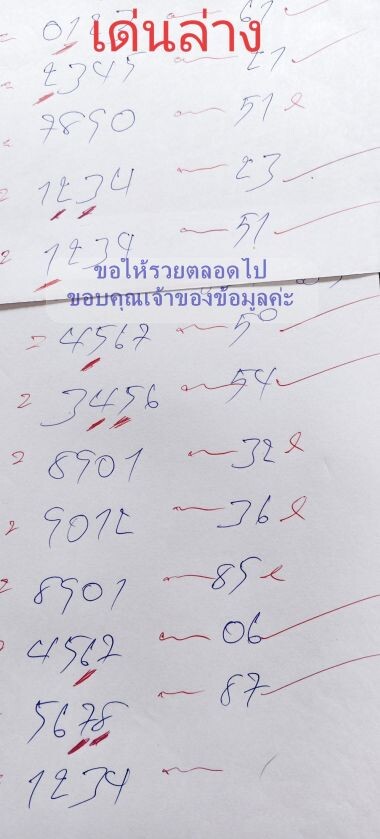 เด่นล่าง
= 01 61
2345 — 21
7890 — 51 ℓ
2 1234 — 23
2 1234 — 51
ขอให้รวยตลอดไป
ขอบคุณเจ้าของข้อมูลค่ะ
= 4567 — 50
2 3456 — 54
2 8901 — 32 ℓ
2 9012 — 36 ℓ
2 8901 — 85 ℓ
4567 — 06
5678 — 87
1234 —